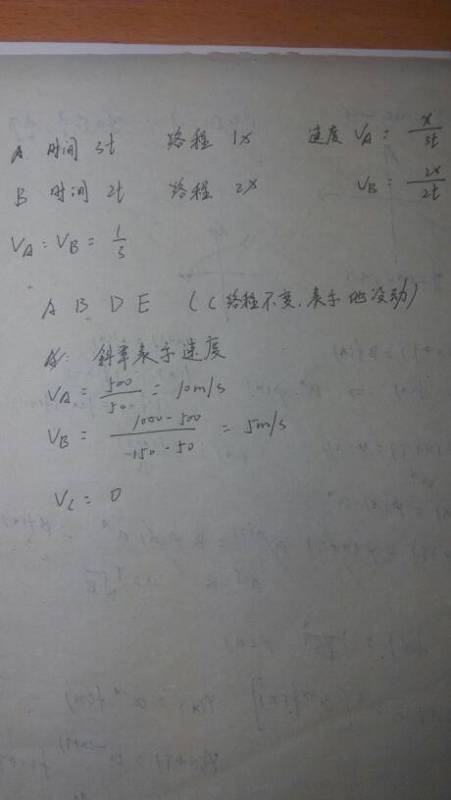 A 时间 3t 路程 1x 速度 VA = x/3t
B 时间 2t 路程 2x VB = 2x/2t
VA : VB = 1/3
A B D E (C路程不变.表示他没动)
A: 斜率表示速度
VA = 500/50 = 10m/s
VB = 1000-500/-150-50 = 5m/s
VC = 0